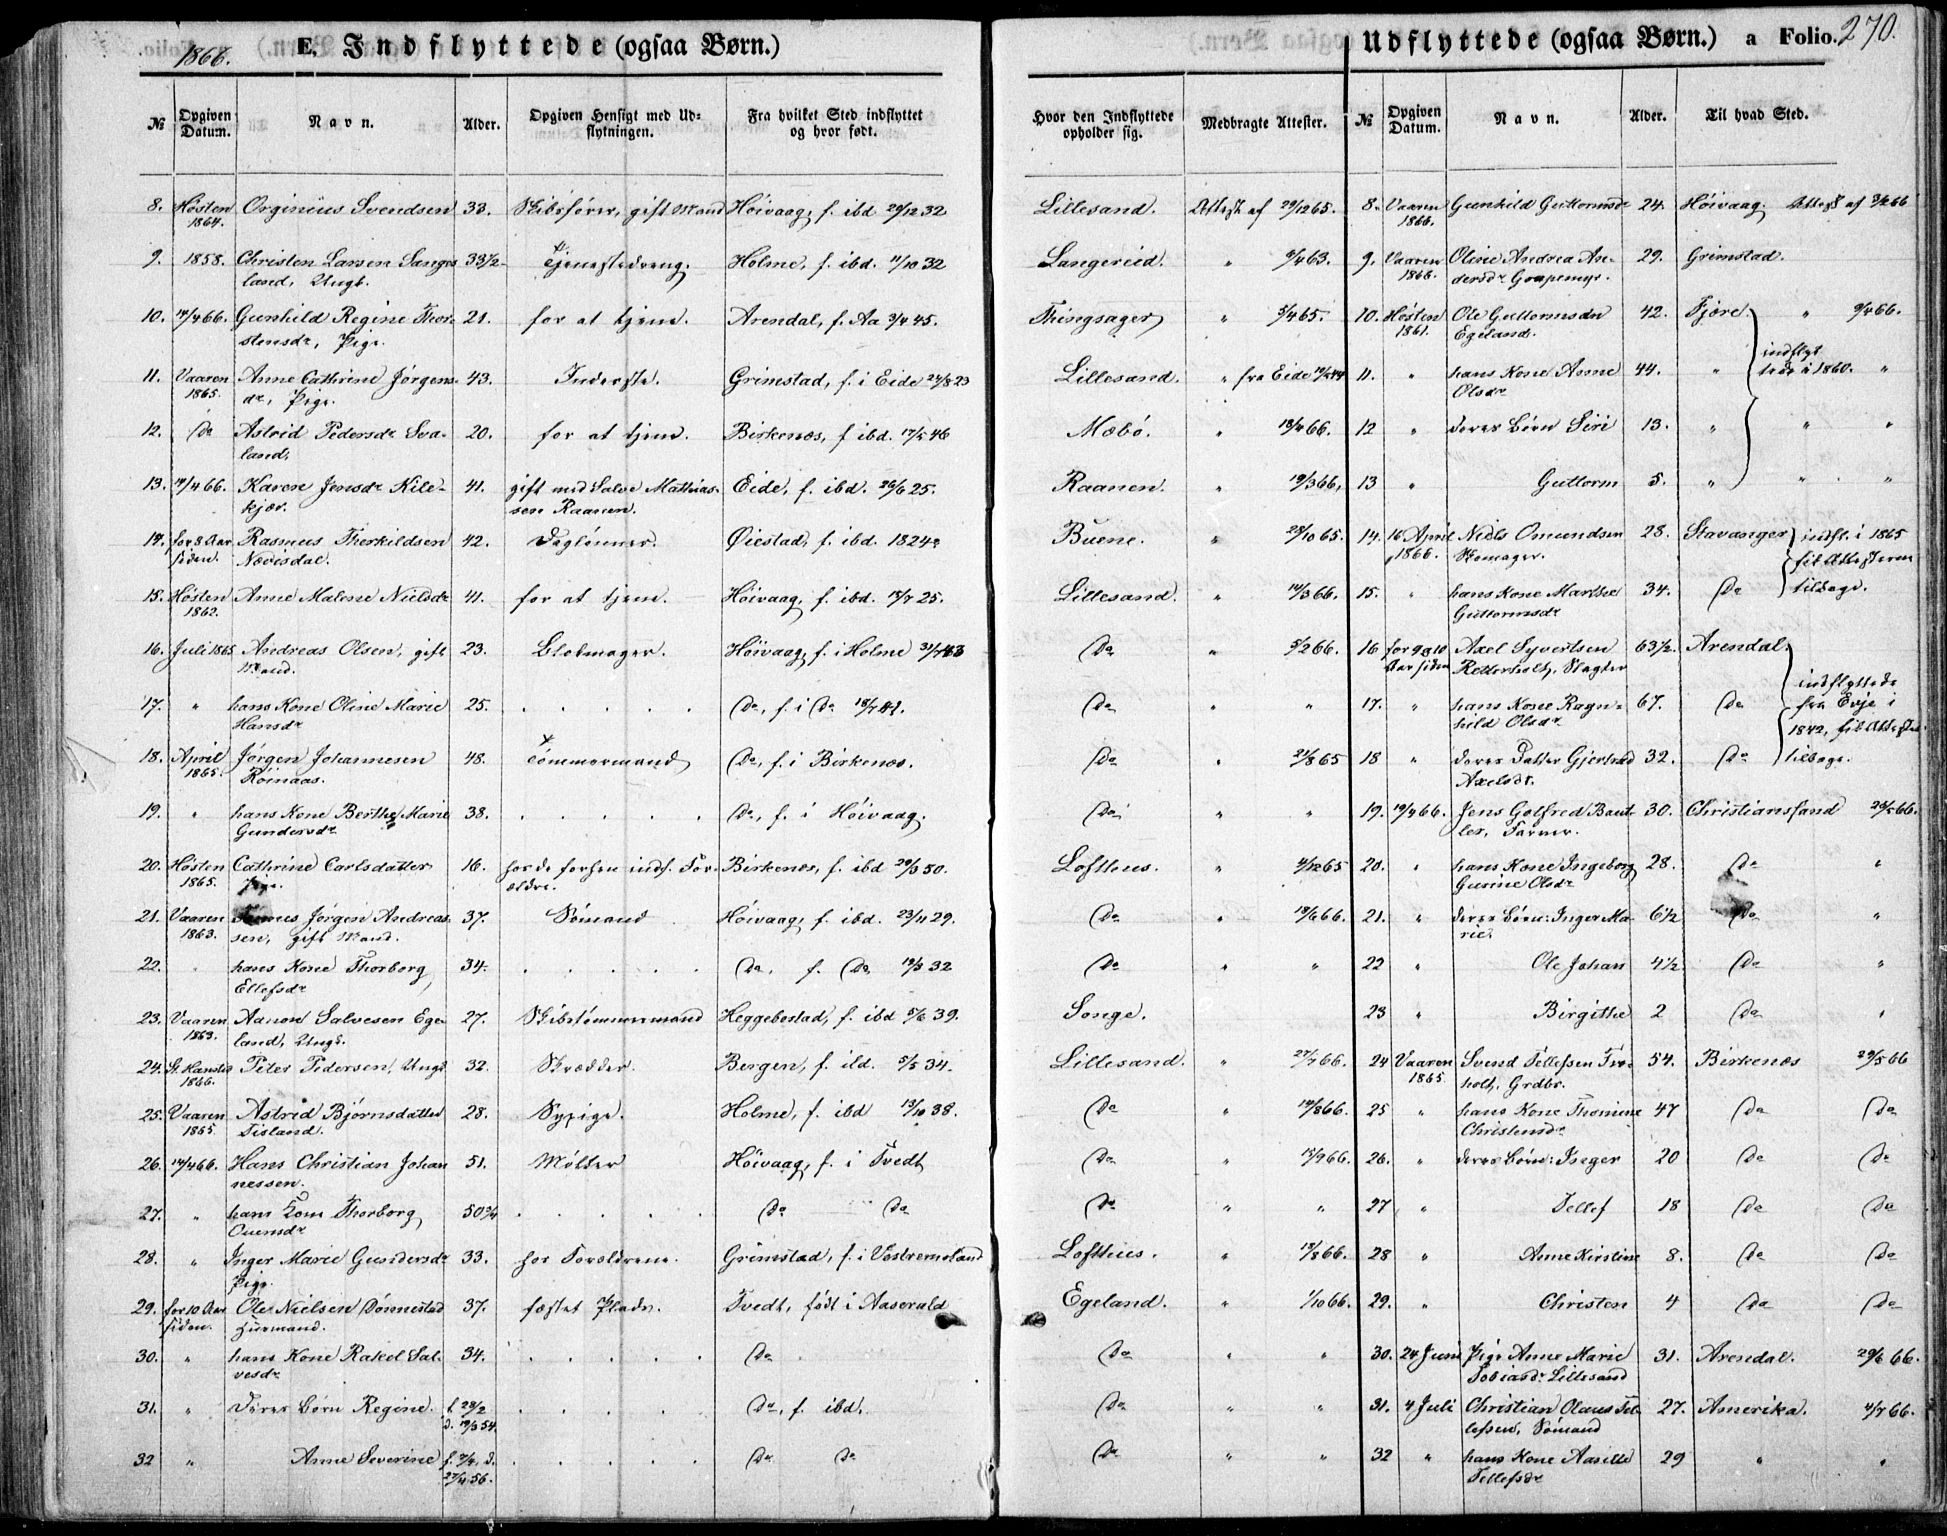 1866. E. Indflyttede (ogsaa Børn.)
Udflyttede (ogsaa Børn.) a Folio. 270.
№ Opgiven Datum. Navn. Alder. Opgiven Hensigt med Udflytningen. Fra hvilket Sted indflyttet og hvor født. Hvor den Indflyttede opholder sig. Medbragte Attester. № Opgiven Datum. Navn. Alder. Til hvad Sted.
8. Høsten 1864. Orginius Svendsen 33. Skibsfører, gift Mand Høivaag, f. ibd 29/12 32 Lillesand. Attest af 29/12 65. 8. Vaaren 1866. Gunhild Guttormsdr 24. Høivaag. Attest af
9. 1858. Christen Larsen Sangesland, Ungk. 33½ Tjenestedreng. Holme, f. ibd. 11/10 32 Langeried. " 9/4 63. 9. Vaaren 1866. Oline Andrea Andersdr 29. Grimstad.
10. 14/4 66. Gunhild Regine Thorstensdr, Pige. 21. for at tjene. Arendal, f. Aa 3/4 45. Thingsager " 5/4 65. 10. Høsten 1861. Ole Guttormsen Egeland. 42. Fjære. " 9/4 66.
11. Vaaren 1865. Anne Cathrine Jørgensdr, Pige. 43. Inderste. Grimstad, f. i Eide 24/8 23 Lillesand. " fra Eide 11. " hans Kone Anne Olsdr 44. " indflyttede i 1860. "
12. Do Astrid Pedersdr Svaland, 20. for at tjene. Birkenæs, f. ibd. 17/5 46 Mæbø. " 13/4 66. 12 " deres Børn Siri 13. " " "
13. 14/4 66. Karen Jensdr Kilekjær. 41. gift med Salve Mathiassen Raanen. Eide, f. ibd. 26/6 25. Raanen. " 19/3 66, 13 " Guttorm 5. " " "
14. for 8 Aar siden. Rasmus Therkildsen Nævisdal. 42. Dagleiner. Øiestad, f. ibd. 1824 Buene. " 28/10 65. 14. 16 April 1866. Niels Omundsen Skomager. 28. Stavanger indfl. i 1865
15. Høsten 1862. Anne Malene Nielsdr 41. for at tjene. Høivaag, f. ibd. 17/7 25. Lillesand. " 14/3 66. 15. " hans Kone Marthe Guttormsdr 34. Do tilbage.
16. Juli 1865 Andreas Olsen, gift Mand. 23. Blokmager. Høivaag, f. i Holme 31/7 43 Do " 5/2 66. 16 for 9 a 10 Aar siden Axel Syvertsen Retterholt, Slagter 63½. Arendal.
17. " hans Kone Oline Marie Hansdr 25. Do, f. i Do 18/7 41. Do " " 17. " hans Kone Ragnhild Olsdr 67. Do indflyttede fra Evje i 1842,
18. April 1865. Jørgen Johannesen Røinaas. 48. Tømmermand Do, f. i Birkenæs. Do " 21/8 65 18 " deres Datter Gjertrud Axelsdr. 32. Do tilbage.
19. " hans Kone Berthe Marie Gundersdr 38. Do, f. i Høivaag. Do " " 19. 19/4 66. Jens Golfred Bentler, Farver. 30. Christiansand 23/5 66.
20. Høsten 1865. Cathrine Carlsdatter Pige. 16. hos de forhen indf. Forældre. Birkenæs, f. ibd 29/3 50. Lofthus. " 4/12 65 20. " hans Kone Ingeborg Gurine Olsdr 28. Do "
21. Vaaren 1863. Jørgen Andreassen, gift Mand. 37. Sømand Høivaag, f. ibd. 23/11 29. Do " 18/6 66. 21. " deres Børn: Inger Marie. 6½ Do "
22. " hans Kone Thorborg Ellefsdr 34. Do. f. Do 18/3 32 Do " " 22 " Ole Johan 4½ Do "
23. Vaaren 1863. Aanon Salvesen Egeland, Ungk. 27. Skibstømmermand Heggebostad, f. ibd 5/6 39. Songe. 23 " Birgithe 2 Do "
24. St. Hansted 1866. Peter Pedersen, Ungk 32. Skrædder. Bergen, f. ibd. 5/5 34. Lillesand. " 27/7 66. 24 Vaaren 1865 Svend Tellefsen Troholt, Grdbr. 54. Birkenæs 29/5 66
25. Vaaren 1865 Astrid Bjørnsdatter Tisland. 28. Sypige. Holme, f. ibd 13/10 38. Do " 14/8 66. 25 " hans Kone Thomine Christensdr 47 Do Do
26. 14/4 66. Hans Christian Johannessen. 51. Møller Høivaag, f. i Tvedt Do " 15/9 66. 26. " deres Børn: Inger 20 Do Do
27. " hans Kone Thorborg Ouensdr 50¾ Do Do Do " " 27 " Tellef 18 Do Do
28. " Inger Marie Gundersdr Pige. 33. hos Forældrene. Grimstad, f. i Vestremoland Lofthus. " 18/8 66. 28 " Anne Kirstine 8. Do Do
29. for 10 Aar siden. Ole Nielsen Dønnestad Huusmand. 37. fæstet Plads. Tvedt, født i Aaserald Egeland. " 1/10 66. 29. " Christen 4 Do Do
30. " hans Kone Rakel Salvesdr. 34. Do Do " " 30. 24 Juni Pige Anne Marie Tobiasdr Lillesand 31. Arendal. 29/6 66.
31. " Deres Børn Regine. f. 28/2 d. 19/3 54. Do, f. ibd. Do " " 31. 4 Juli Christian Olaus Tellefsen, Sømand 27. Amerika. 4/7 66.
32 " Anne Severine d. 27/4 56. Do Do Do " " 32 " hans Kone Aasille Tellefsdr 29 " "